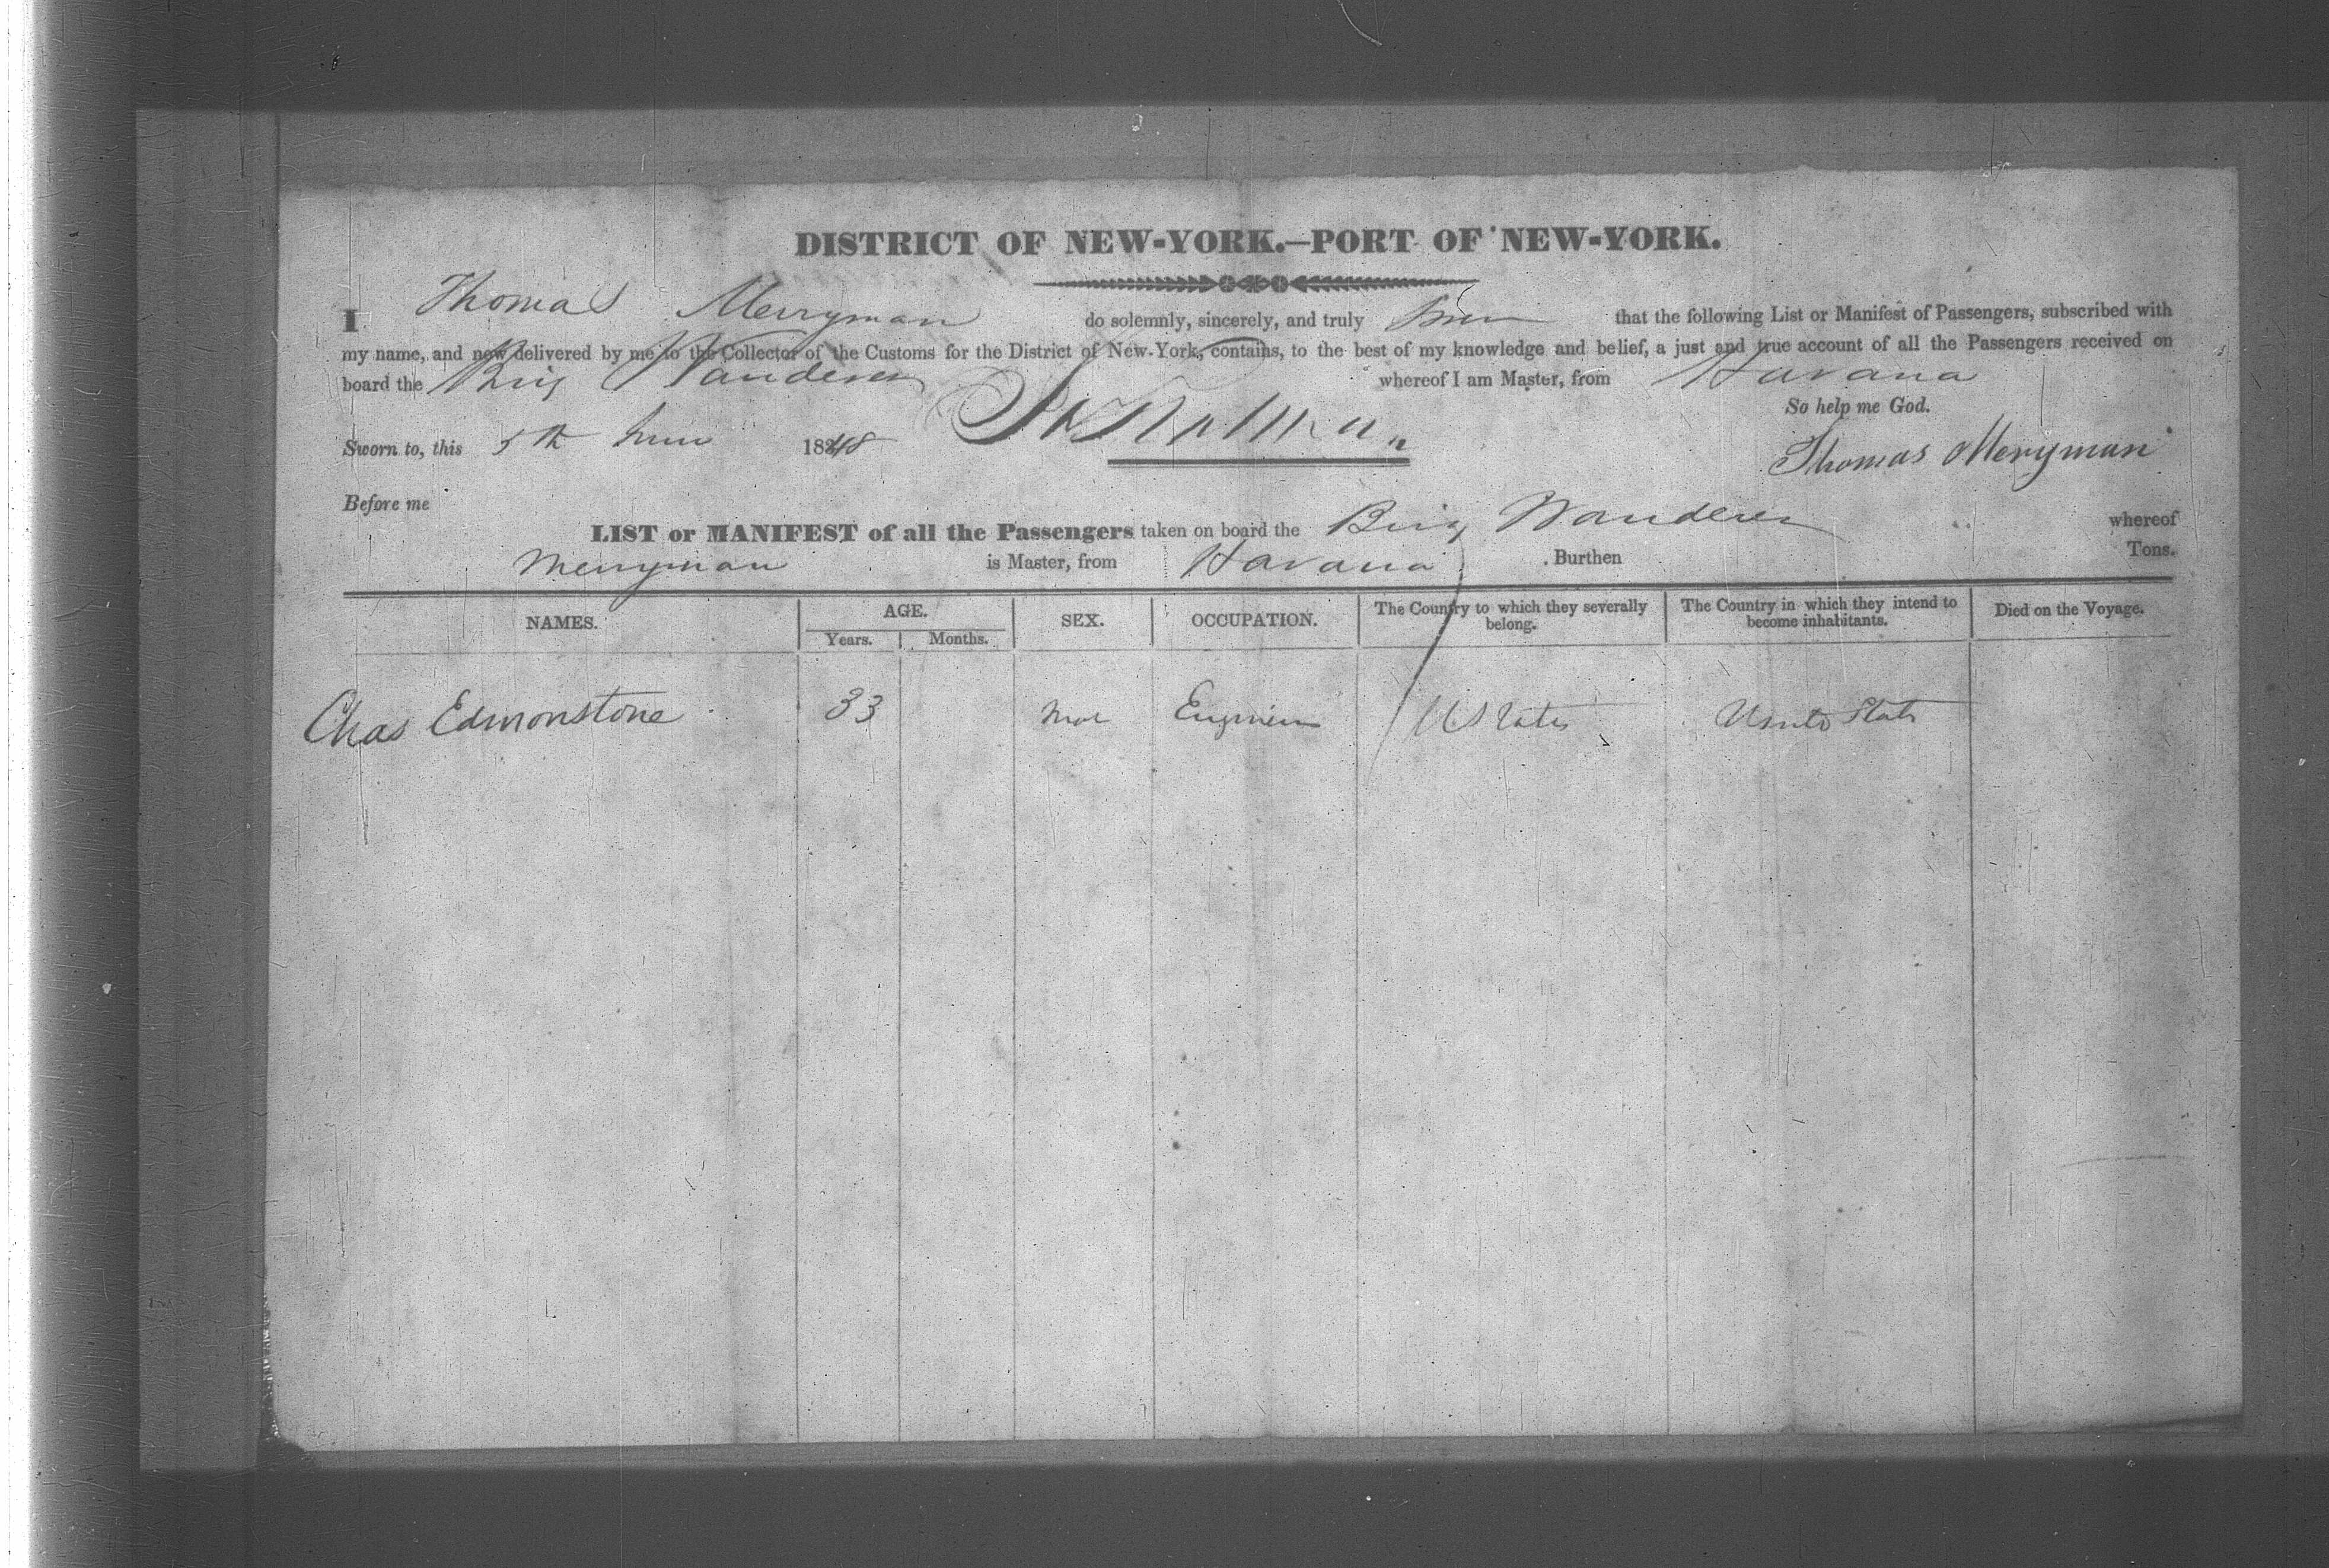 DISTRICT OF NEW-YORK.—PORT OF NEW-YORK.
I Thomas Merryman do solemnly, sincerely, and truly that the following List or Manifest of Passengers, subscribed with
my name, and now delivered by me to the Collector of the Customs for the District of New-York, contains, to the best of my knowledge and belief, a just and true account of all the Passengers received on
board the Brig Wanderer whereof I am Master, from Havana
So help me God.
Sworn to, this 5th June 1848
Thomas Merryman
Before me
LIST or MANIFEST of all the Passengers taken on board the Brig Wanderer whereof
Merryman is Master, from Havana Burthen Tons.
NAMES. AGE. SEX. OCCUPATION. The Country to which they severally belong. The Country in which they intend to become inhabitants. Died on the Voyage.
Years. Months.
Chas Edmonstone 33 Male Engineer U States United States